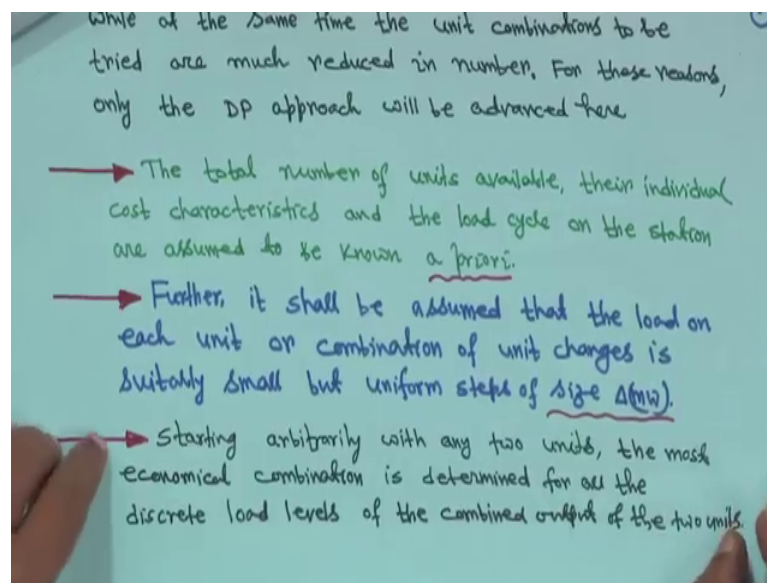 while at the same time the unit combinations to be
tried are much reduced in number. For these reasons,
only the DP approach will be advanced here
The total number of units available, their individual
cost characteristics and the load cycle on the station
are assumed to be known a priori.
Further, it shall be assumed that the load on
each unit or combination of unit changes is
suitably small but uniform steps of size Δ(MW).
Starting arbitrarily with any two units, the most
economical combination is determined for all the
discrete load levels of the combined output of the two units.